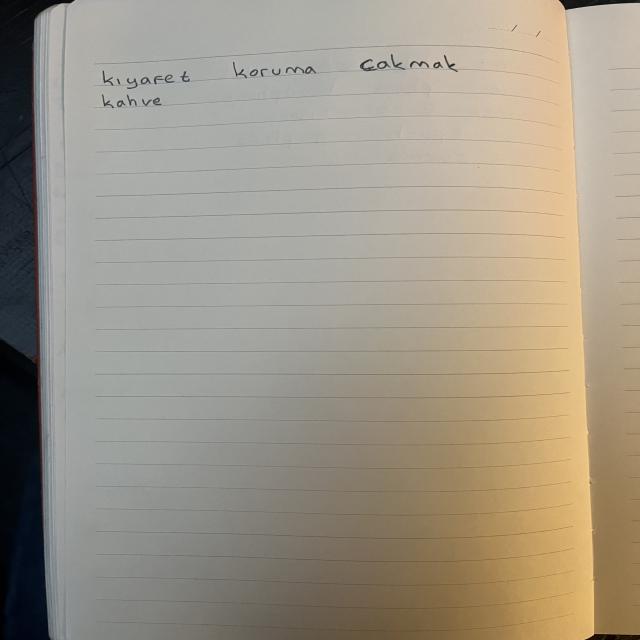 kıyaret koruma cakmak
kahve